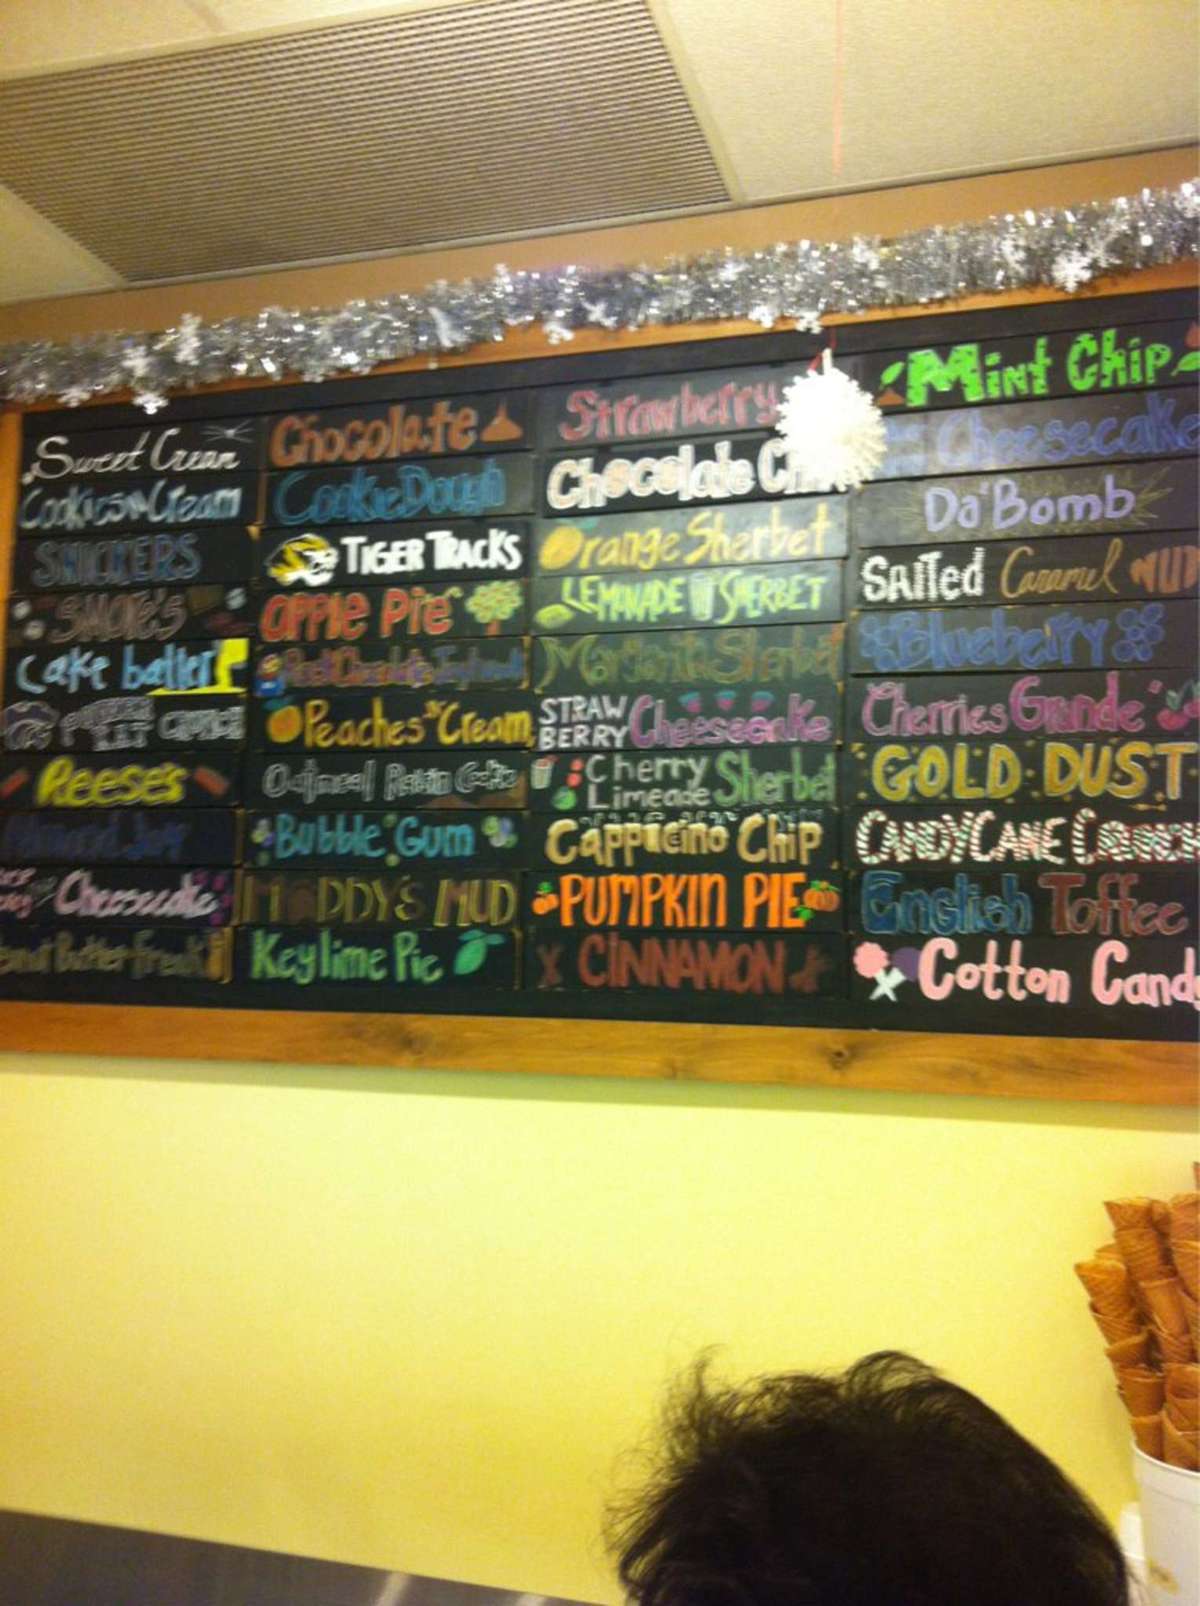 Sweet Cream
Cookies n Cream
SNICKERS
SMORE'S
cake batter
Reese's
Almond Joy
Cheesecake
Butter Freak
Chocolate
Cookie Dough
TIGER TRACKS
APPLE PiE
Peaches 'n' Cream
Oatmeal Raisin Cookie
Bubble Gum
MUDDY'S MUD
Key lime Pie
Strawberry
Chocolate
Orange Sherbet
LEMONADE SHERBET
Margarita Sherbet
STRAW
BERRY Cheesecake
Cherry
Limeade Sherbet
Cappucino Chip
PUMPKIN PIE
CINNAMON
Mint Chip
Cheesecake
Da'Bomb
SAlTed Caramel
Blueberry
Cherries Grande
GOLD DUST
CANDY CANE
English Toffee
Cotton